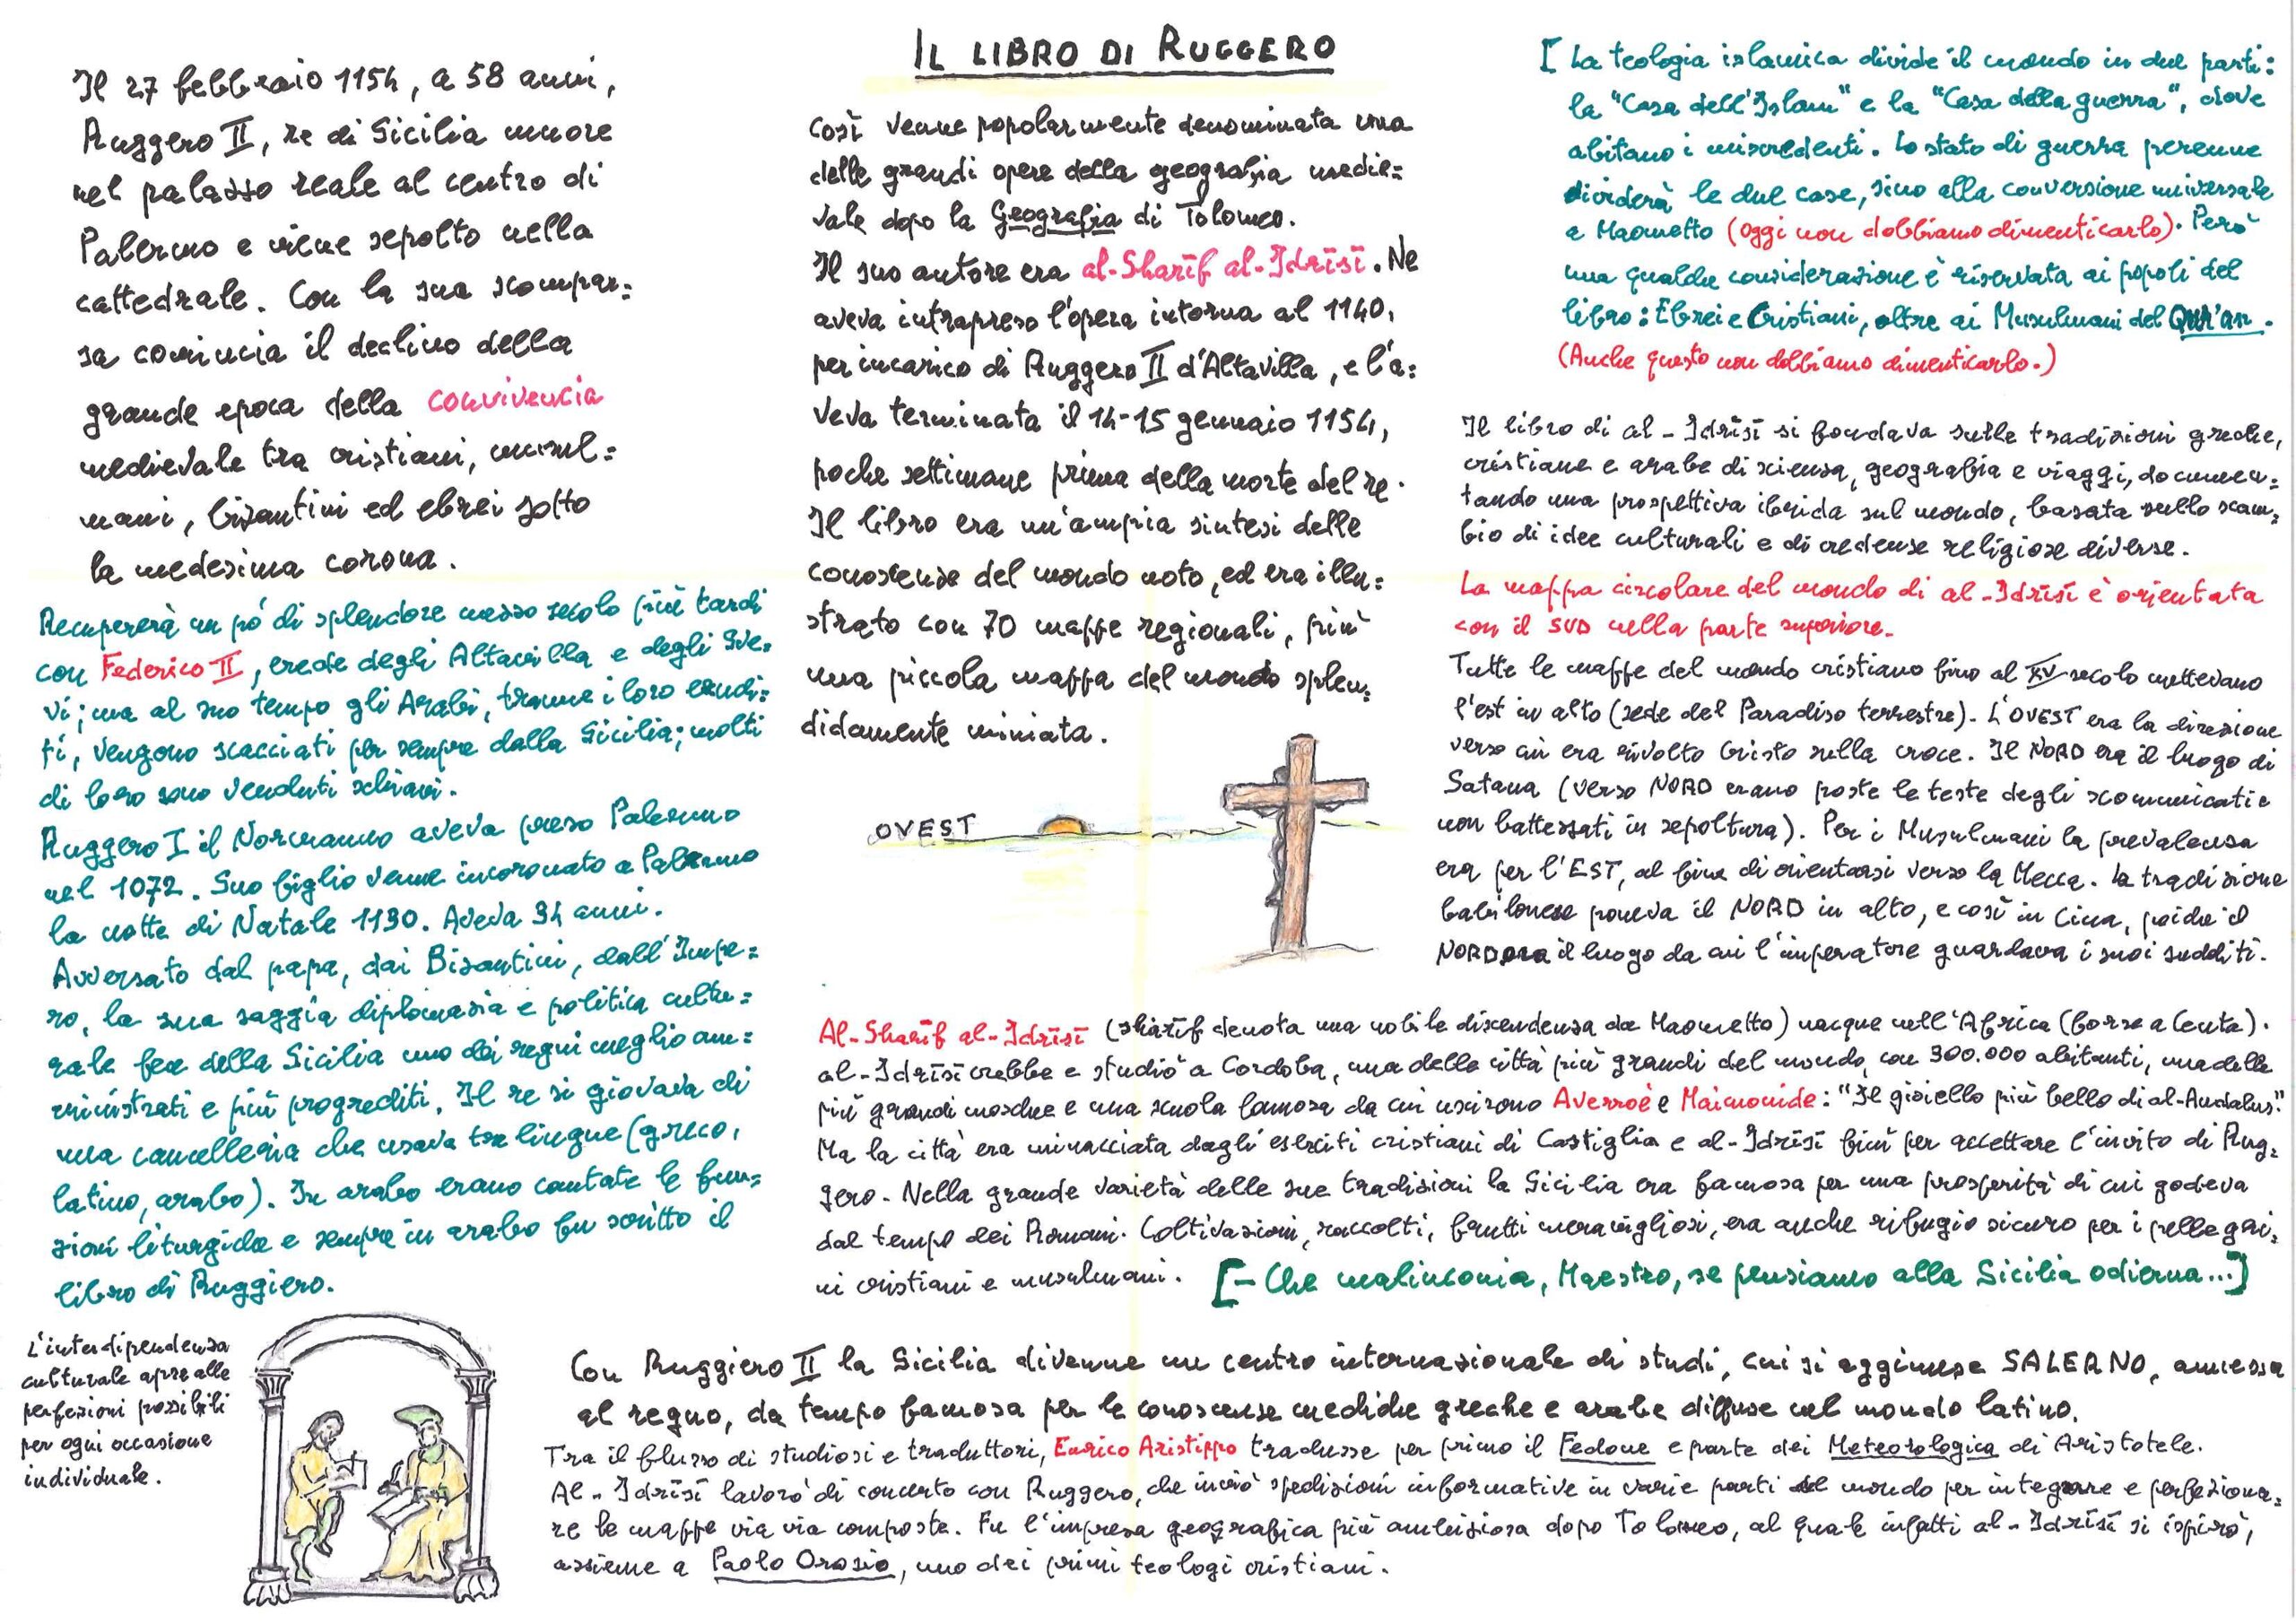 IL LIBRO DI RUGGERO
Il 27 febbraio 1154, a 58 anni,
Ruggero II, re di Sicilia muore
nel palazzo reale al centro di
Palermo e viene sepolto nella
cattedrale. Con la sua scompar=
sa comincia il declino della
grande epoca della convivencia
medievale tra cristiani, musul=
mani, bizantini ed ebrei sotto
la medesima corona.
Recupererà un pó di splendore mezzo secolo più tardi
con Federico II, erede degli Altavilla e degli Sve=
vi; ma al suo tempo gli Arabi, tranne i loro erudi=
ti, vengono scacciati per sempre dalla Sicilia; molti
di loro sono venduti schiavi.
Ruggero I il Normanno aveva preso Palermo
nel 1072. Suo figlio venne incoronato a Palermo
la notte di Natale 1130. Aveva 34 anni.
Avversato dal papa, dai Bizantini, dall'Impe=
ro, la sua saggia diplomazia e politica cultu=
rale fece della Sicilia uno dei regni meglio am=
ministrati e più progrediti. Il re si giovava di
una cancelleria che usava tre lingue (greco,
latino, arabo). In arabo erano cantate le fun=
zioni liturgiche e sempre in arabo fu scritto il
libro di Ruggiero.
L'interdipendenza
culturale apre alle
perfezioni possibili
per ogni occasione
individuale.
Così venne popolarmente denominata una
delle grandi opere della geografia medie=
vale dopo la Geografia di Tolomeo.
Il suo autore era al-Sharīf al-Idrīsī. Ne
aveva intrapreso l'opera intorno al 1140,
per incarico di Ruggero II d'Altavilla, e l'a=
veva terminata il 14-15 gennaio 1154,
poche settimane prima della morte del re.
Il libro era un'ampia sintesi delle
conoscenze del mondo noto, ed era illu=
strato con 70 mappe regionali, più
una piccola mappa del mondo splen=
didamente miniata.
OVEST
[ La teologia islamica divide il mondo in due parti:
la "Casa dell'Islam" e la "Casa della guerra", dove
abitano i miscredenti. Lo stato di guerra perenne
dividerà le due case, sino alla conversione universale
a Maometto (oggi non dobbiamo dimenticarlo). Però
una qualche considerazione è riservata ai popoli del
libro: Ebrei e Cristiani, oltre ai Musulmani del Qur'an.
(Anche questo non dobbiamo dimenticarlo.)
Il libro di al-Idrīsī si fondava sulle tradizioni greche,
cristiane e arabe di scienza, geografia e viaggi, documen=
tando una prospettiva ibrida sul mondo, basata sullo scam=
bio di idee culturali e di credenze religiose diverse.
La mappa circolare del mondo di al-Idrīsī è orientata
con il SUD nella parte superiore.
Tutte le mappe del mondo cristiano fino al XV secolo mettevano
l'est in alto (sede del Paradiso terrestre). L'OVEST era la direzione
verso cui era rivolto Cristo sulla croce. Il NORD era il luogo di
Satana (verso NORD erano poste le teste degli scomunicati e
non battezzati in sepoltura). Per i Musulmani la prevalenza
era per l'EST, al fine di orientarsi verso la Mecca. La tradizione
babilonese poneva il NORD in alto, e così in Cina, poiché il
NORD era il luogo da cui l'imperatore guardava i suoi sudditi.
Al-Sharīf al-Idrīsī (sharīf denota una nobile discendenza da Maometto) nacque nell'Africa (forse a Ceuta).
al-Idrīsī crebbe e studiò a Cordoba, una delle città più grandi del mondo, con 300.000 abitanti, una delle
più grandi moschee e una scuola famosa da cui uscirono Averroè e Maimonide: "Il gioiello più bello di al-Andalus".
Ma la città era minacciata dagli eserciti cristiani di Castiglia e al-Idrīsī finì per accettare l'invito di Rug=
gero. Nella grande varietà delle sue tradizioni la Sicilia era famosa per una prosperità di cui godeva
dal tempo dei Romani. Coltivazioni, raccolti, frutti meravigliosi, era anche rifugio sicuro per i pellegri=
ni cristiani e musulmani. [- Che malinconia, Maestro, se pensiamo alla Sicilia odierna...]
Con Ruggiero II la Sicilia divenne un centro internazionale di studi, cui si aggiunse SALERNO, annessa
al regno, da tempo famosa per le conoscenze mediche greche e arabe diffuse nel mondo latino.
Tra il flusso di studiosi e traduttori, Enrico Aristippo tradusse per primo il Fedone e parte dei Meteorologica di Aristotele.
Al-Idrīsī lavorò di concerto con Ruggero, che inviò spedizioni informative in varie parti del mondo per integrare e perfeziona=
re le mappe via via composte. Fu l'impresa geografica più ambiziosa dopo Tolomeo, al quale infatti al-Idrīsī si ispirò,
assieme a Paolo Orosio, uno dei primi teologi cristiani.